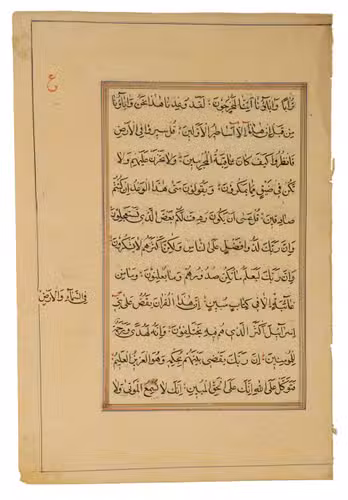 ع
تُرَابًا وَاٰبَاؤُنَا اَئِنَّا لَمُخْرَجُونَ لَقَدْ وُعِدْنَا هٰذَا نَحْنُ وَاٰبَاؤُنَا
مِنْ قَبْلُ اِنْ هٰذَا اِلَّا اَسَاطِيرُ الْاَوَّلِينَ قُلْ سِيرُوا فِى الْاَرْضِ
فَانْظُرُوا كَيْفَ كَانَ عَاقِبَةُ الْمُجْرِمِينَ وَلَا تَحْزَنْ عَلَيْهِمْ وَلَا
تَكُنْ فِى ضَيْقٍ مِمَّا يَمْكُرُونَ وَيَقُولُونَ مَتٰى هٰذَا الْوَعْدُ اِنْ كُنْتُمْ
صَادِقِينَ قُلْ عَسٰى اَنْ يَكُونَ رَدِفَ لَكُمْ بَعْضُ الَّذِى تَسْتَعْجِلُونَ
وَاِنَّ رَبَّكَ لَذُو فَضْلٍ عَلَى النَّاسِ وَلٰكِنَّ اَكْثَرَهُمْ لَا يَشْكُرُونَ
وَاِنَّ رَبَّكَ لَيَعْلَمُ مَا تُكِنُّ صُدُورُهُمْ وَمَا يُعْلِنُونَ وَمَا مِنْ
غَائِبَةٍ اِلَّا فِى كِتَابٍ مُبِينٍ اِنَّ هٰذَا الْقُرْاٰنَ يَقُصُّ عَلٰى بَنِى
فِى السَّمَاءِ وَالْاَرْضِ
اِسْرَائِيلَ اَكْثَرَ الَّذِى هُمْ فِيهِ يَخْتَلِفُونَ وَاِنَّهُ لَهُدًى وَرَحْمَةٌ
لِلْمُؤْمِنِينَ اِنَّ رَبَّكَ يَقْضِى بَيْنَهُمْ بِحُكْمِهِ وَهُوَ الْعَزِيزُ الْعَلِيمُ
فَتَوَكَّلْ عَلَى اللهِ اِنَّكَ عَلَى الْحَقِّ الْمُبِينِ اِنَّكَ لَا تُسْمِعُ الْمَوْتٰى وَلَا